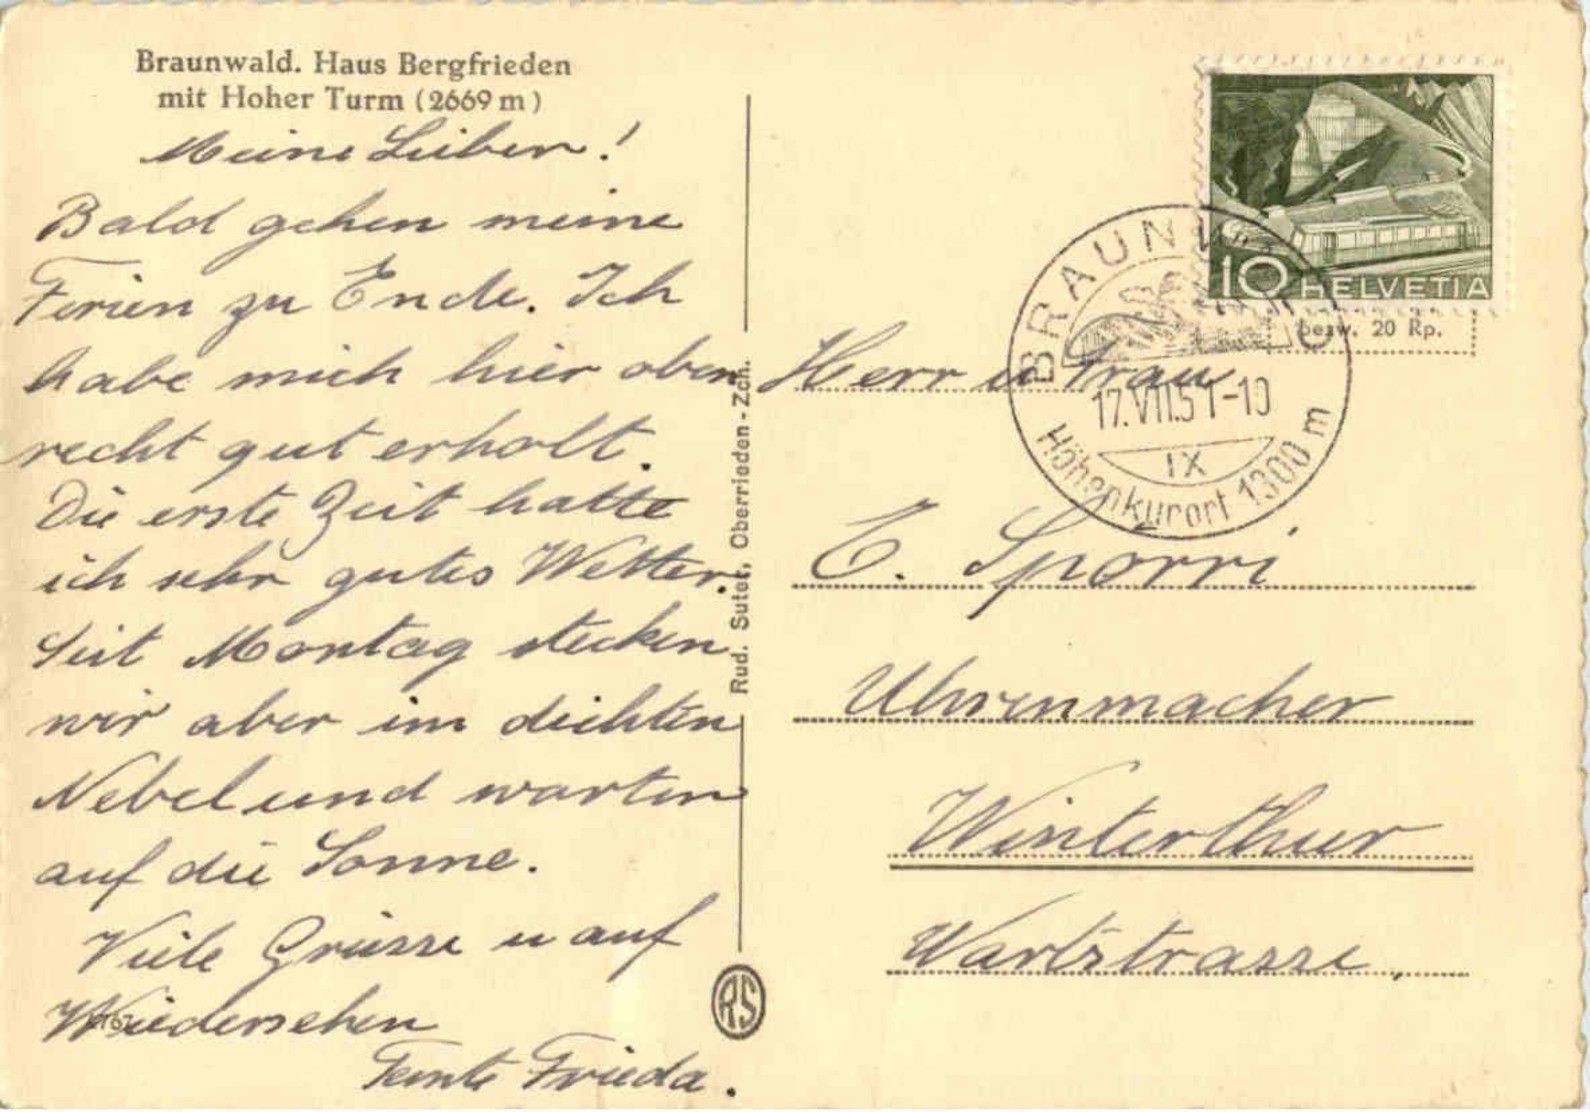 Braunwald. Haus Bergfrieden
mit Hoher Turm (2669 m)
Meine Lieben!
Bald gehen meine
Ferien zu Ende. Ich
habe mich hier oben
recht gut erholt.
Die erste Zeit hatte
ich sehr gutes Wetter.
Seit Montag stecken
wir aber im dichten
Nebel und warten
auf die Sonne.
Viele Grüsse u auf
Wiedersehen
Tante Frieda.
Rud. Suter, Oberrieden-Zch.
RS
10 HELVETIA
besw. 20 Rp.
BRAUNWALD
17.VII.51-10
IX
Höhenkurort 1300 m
Herr u Frau
E. Spörri
Uhrenmacher
Winterthur
Wartstrasse.